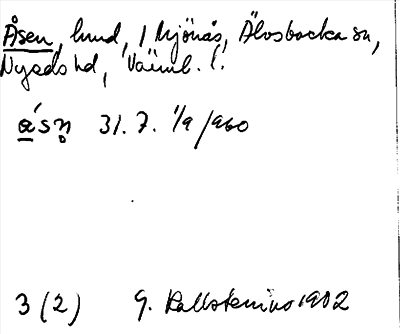 Åsen, lund, 1 Mjönäs, Älvsbacka sn,
Nyeds hd, Värml. l.
ásn 31. 7. 1/9 1960
3 (2) G. Kallstenius 1902